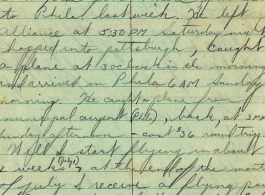 to Phila. last week. We left
Alliance at 5:30 PM Saturday night
hopped into pittsburgh, caught
a plane at 3 o'clock in the morning
and arrived in Phila 6 AM Sunday
morning. We caught a plane from
municipal airport (Phila), back, at 3 PM
Sunday afternoon - cost $36 round trip.
Well I start flying in about
2 weeks, at the end of the month
of July I receive a flying